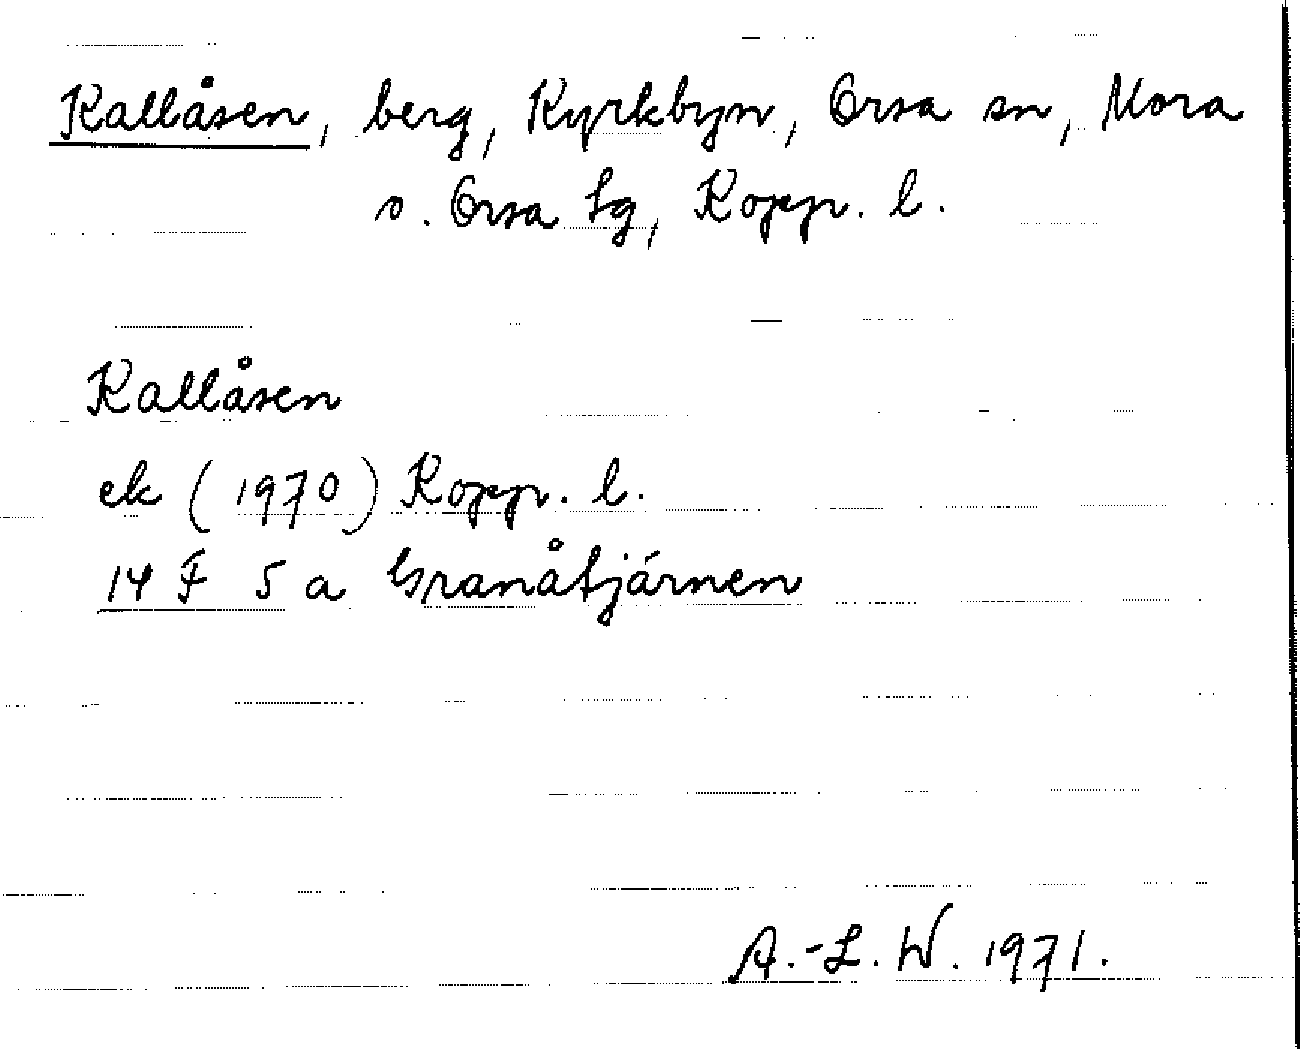 Kallåsen, berg, Kyrkbyn, Orsa sn, Mora
o. Orsa tg, Kopp. l.
Kallåsen
ek (1970) Kopp. l.
14 F 5 a Granåtjärnen
A.-L. W. 1971.